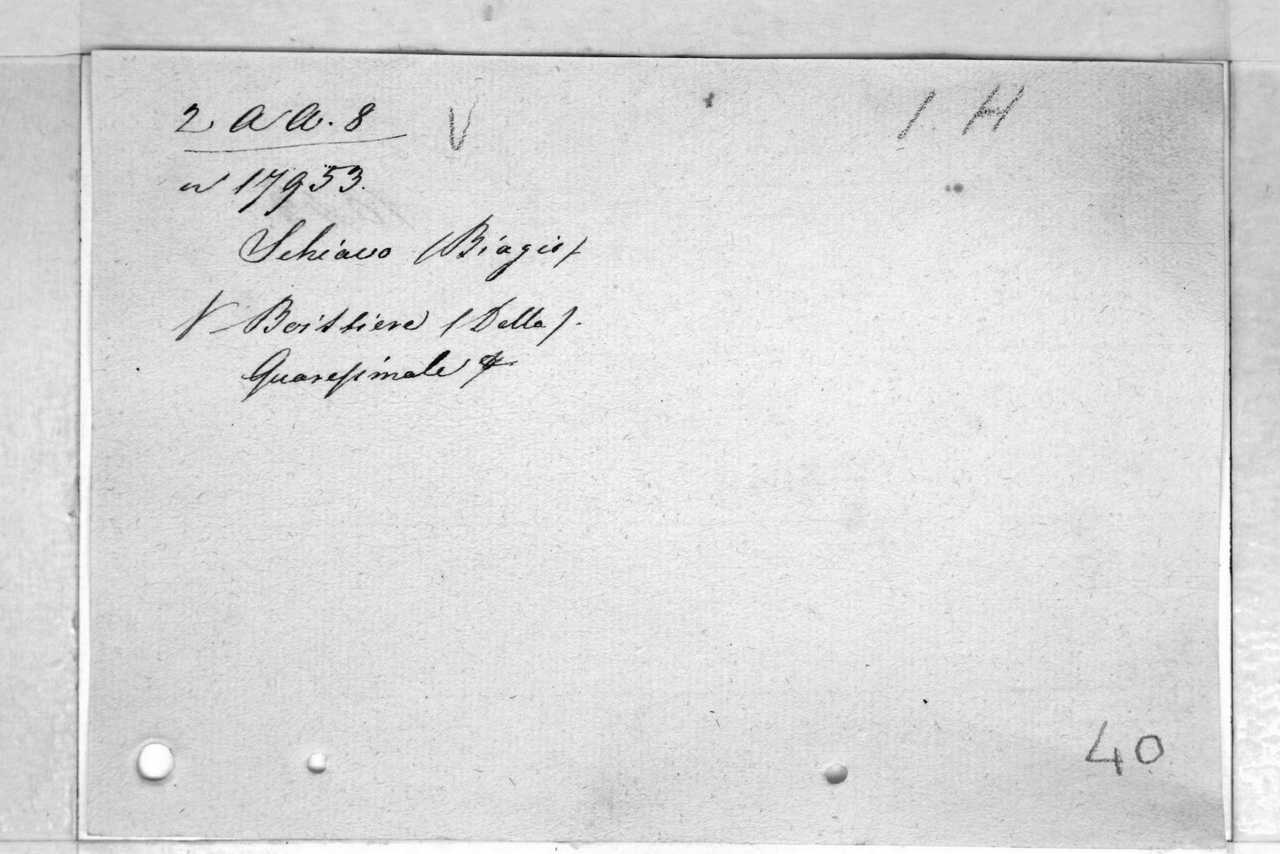 2 a a. 8 V 1 H
n 17953.
Schiavo (Biagio)
V Boissiere (Della).
Quaresimale
40